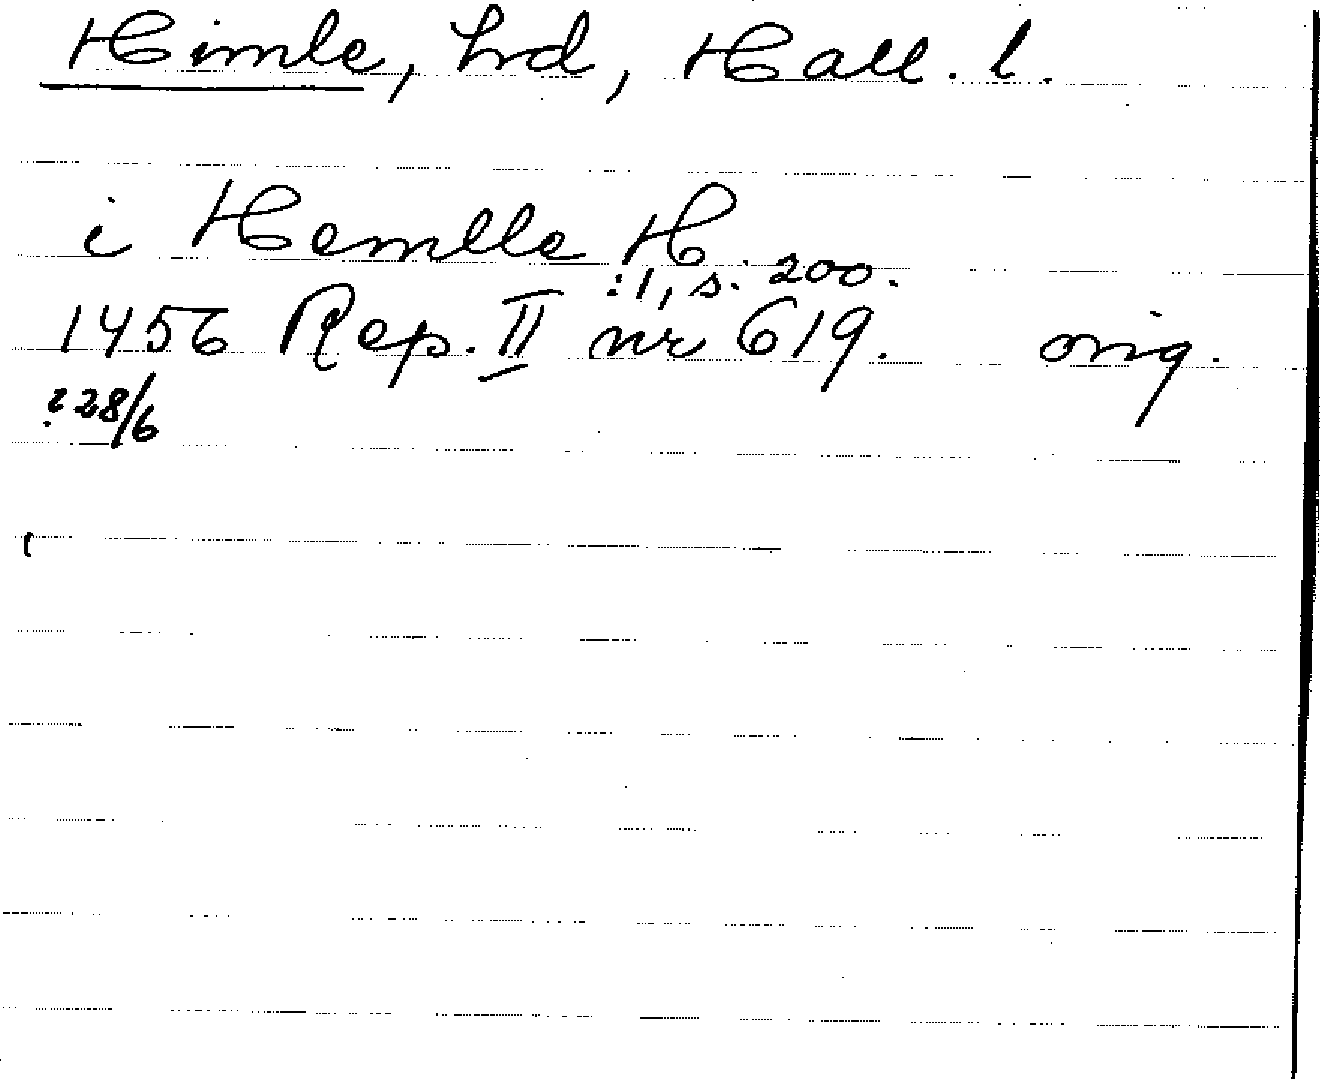 Himle, hrd, Hall. l.
i Hemlle H
:1, s. 200.
1456 Rep. II nr 619. orig.
? 28/6